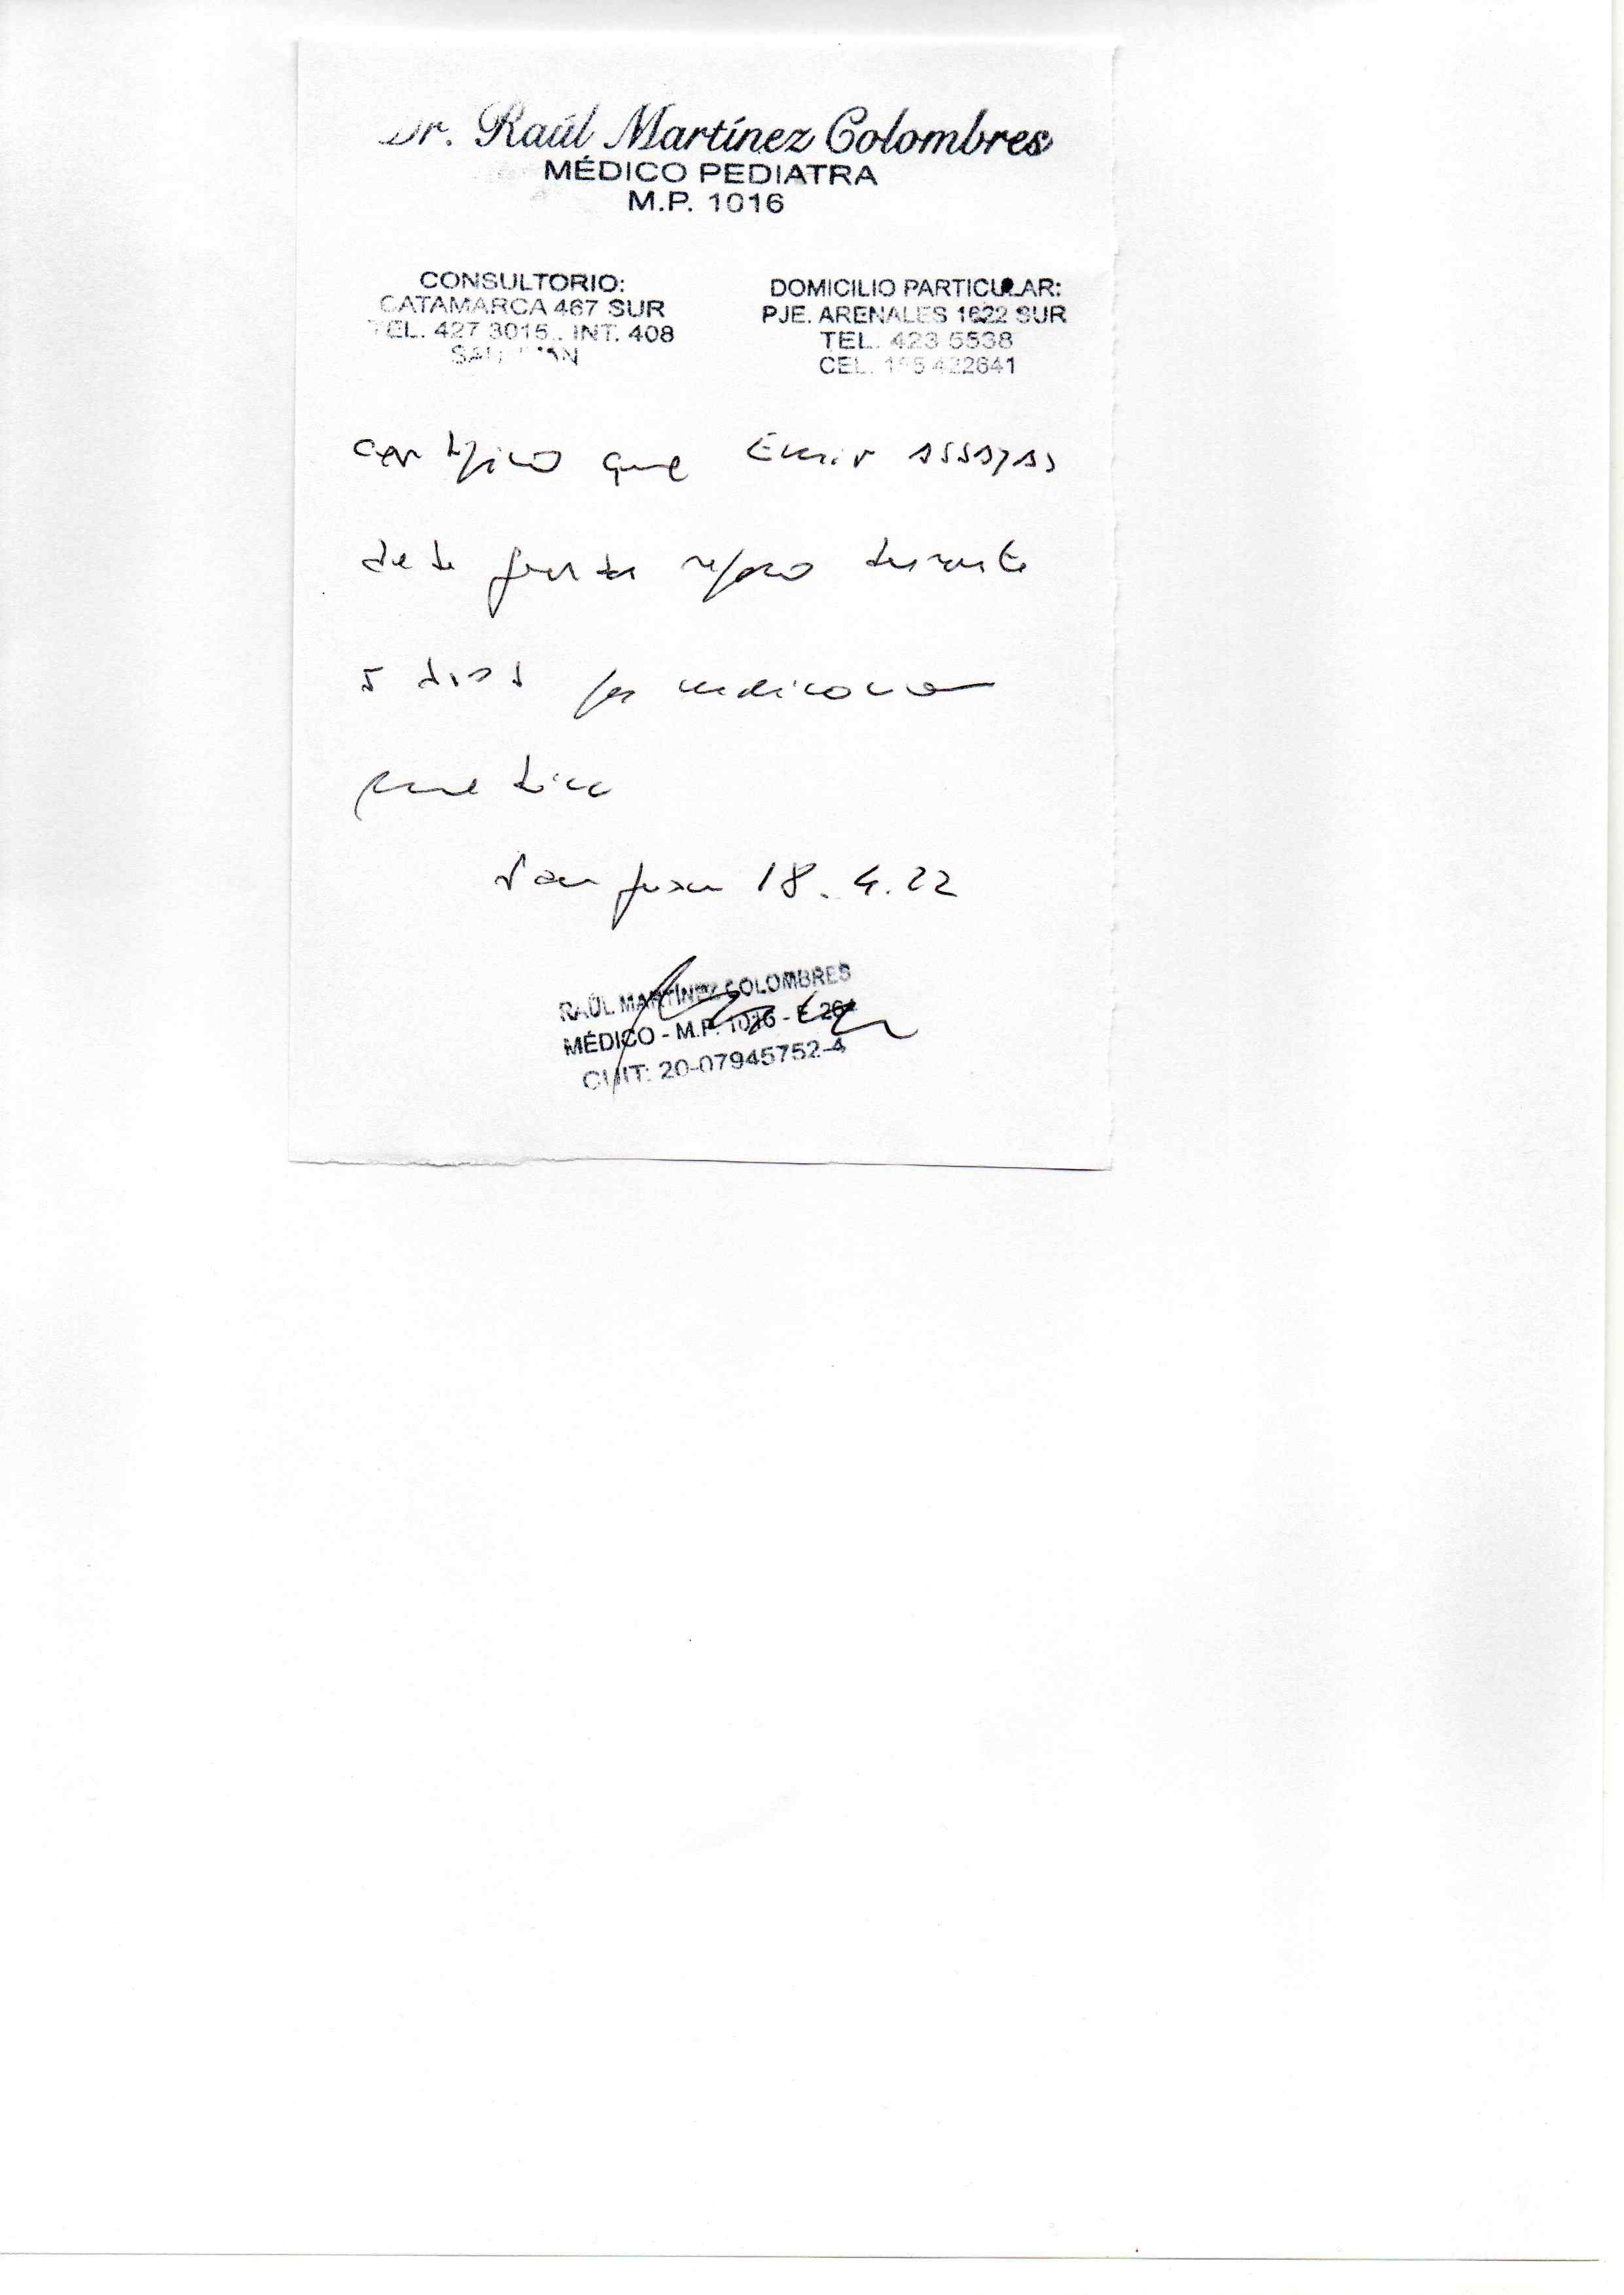 Dr. Raúl Martínez Colombres
MÉDICO PEDIATRA
M.P. 1016
CONSULTORIO:
CATAMARCA 467 SUR
TEL. 427 3015.. INT. 408
DOMICILIO PARTICULAR:
PJE. ARENALES 1622 SUR
TEL. 423 5538
CEL.
certifico que
debe guardar reposo durante
5 dias por
San Juan 18.4.22
RAÚL MARTÍNEZ COLOMBRES
MÉDICO - M.P. 1016 -
CUIT: 20-07945752-4